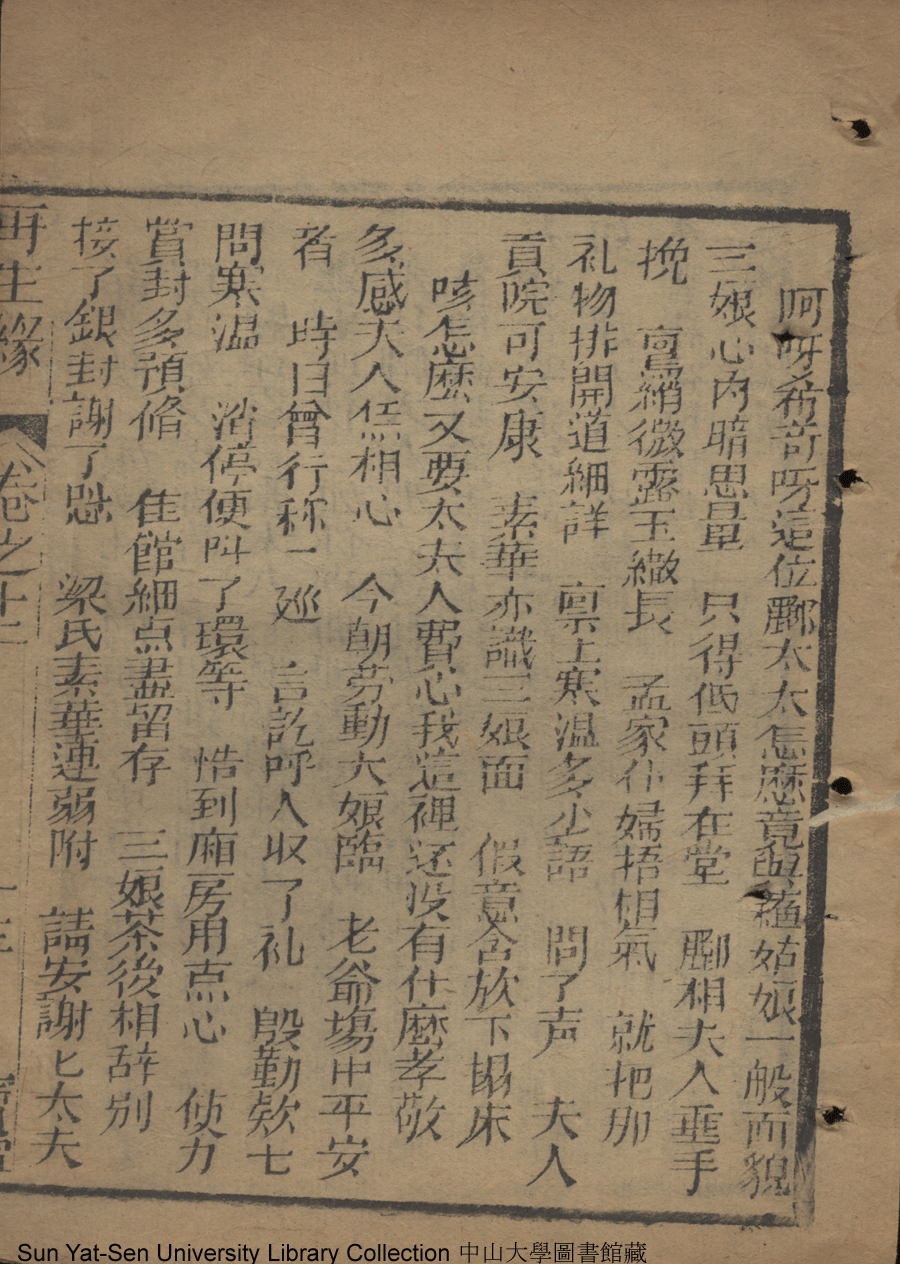 阿呀希竒呀這位酈太太怎麽竟與蘓姑娘一般面貌
三娘心内暗思量　只得低頭拜在堂　酈相夫人垂手
挽　鴛綃微露玉纎長　孟家仆婦捂相氣　就把那
礼物排開道細詳　禀上寒温多少語　問了声　夫人
貢院可安康　素華亦識三娘面　假意含放下搨床
咳怎麽又要太夫人費心我這裡还没有什麽孝敬
多感夫人恁相心　今朝劳動大娘臨　老爺塲中平安
者　時日曾行称一廵　言訖呼人収了礼　殷勤欵七
問寒温　　停便叫了環等　悎到廂房用点心　使力
賞封多預俻　佳館細点盡留存　三娘茶後相辞别
接了銀封謝了恩　梁氏素華連弱附　請安謝匕太夫
再生緣　卷之十二　十三　寳
Sun Yat-Sen University Library Collection 中山大學圖書館藏